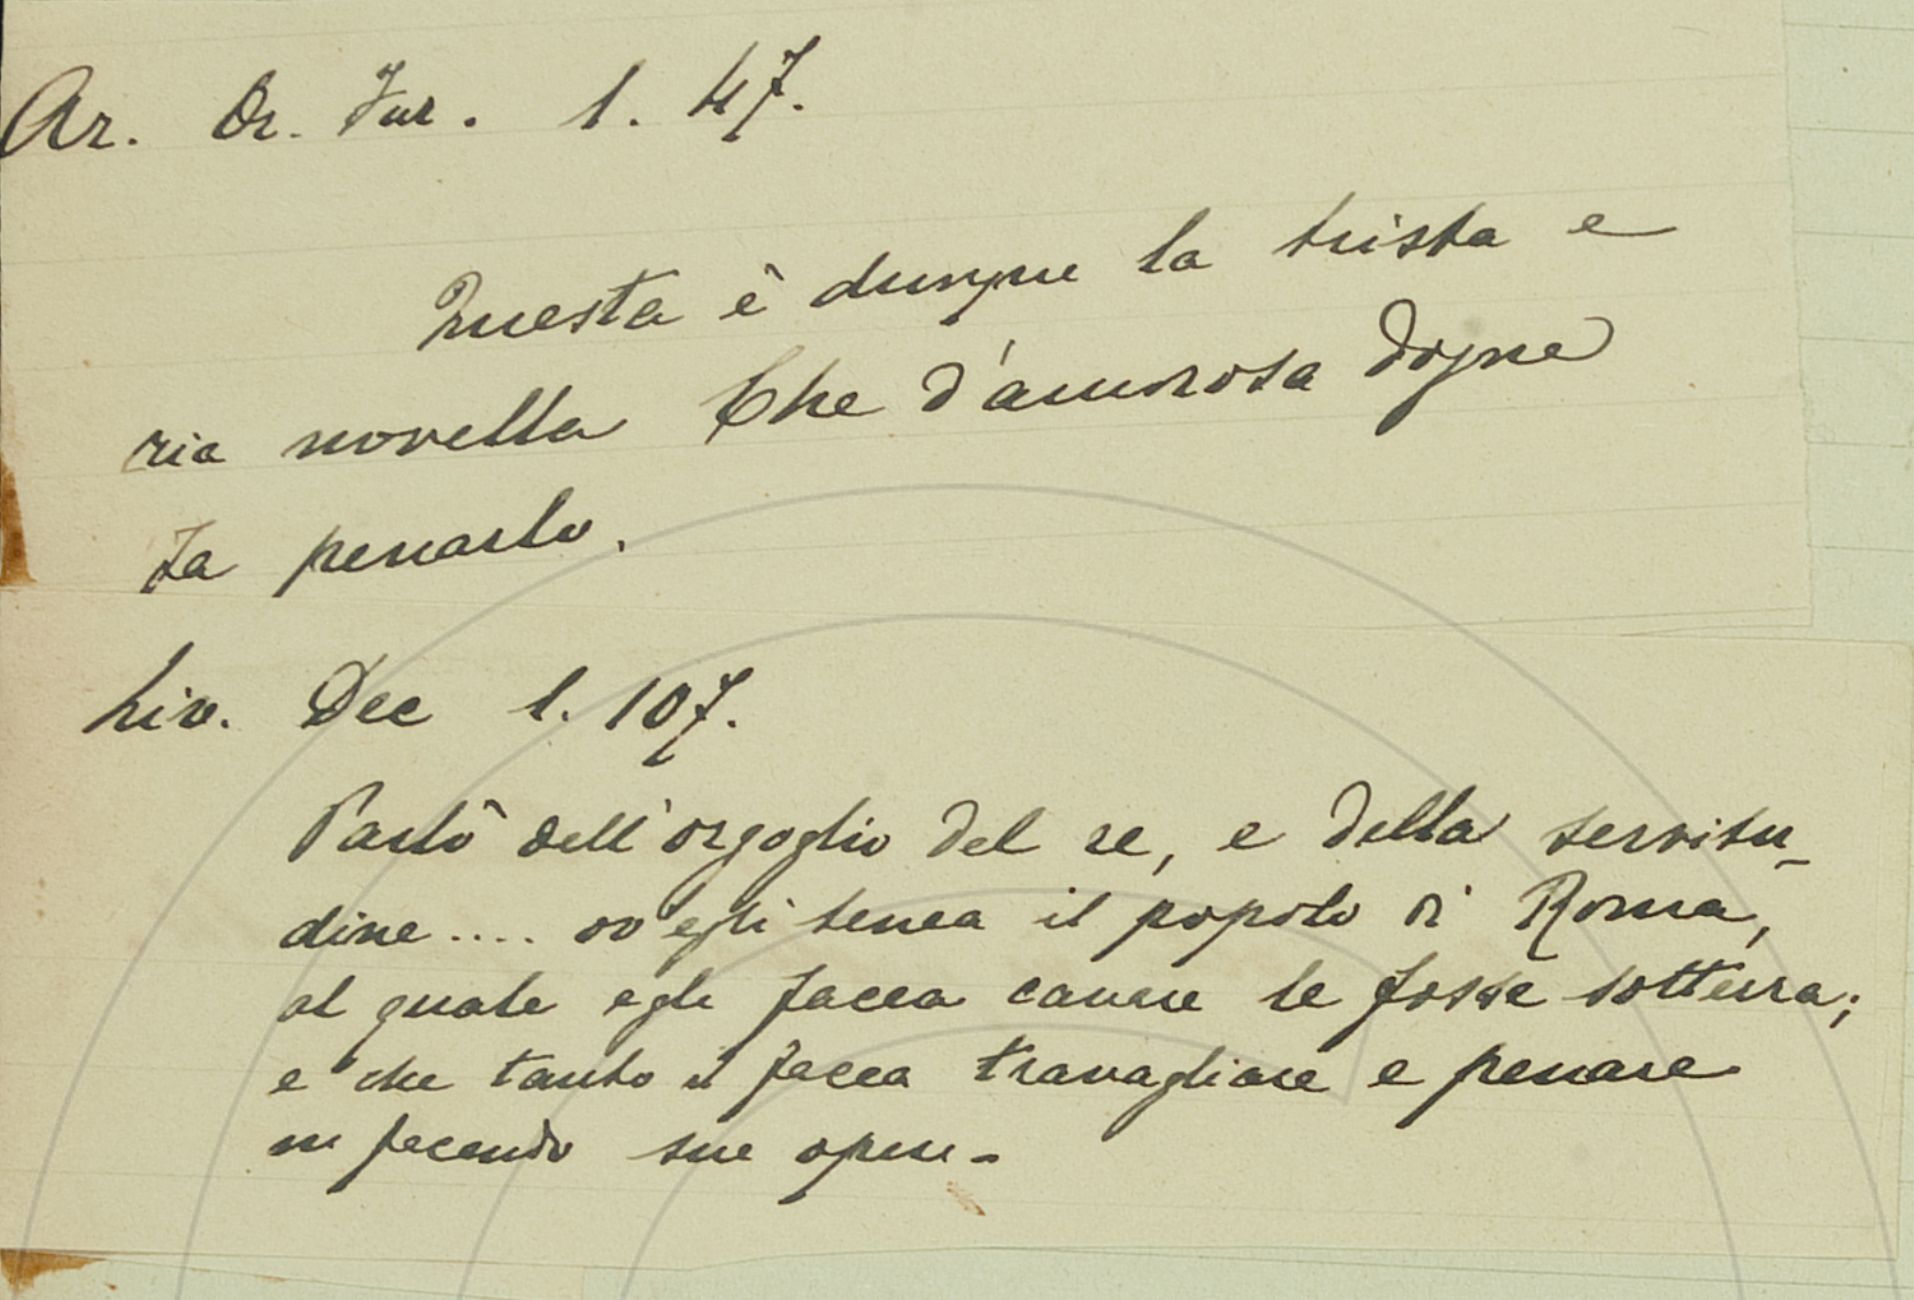 Ar. Or. Fur. 1. 47.
Questa è dunque la trista e
ria novella Che d'amorosa doglia
fa penarlo.
Liv. Dec 1. 107.
Parlò dell'orgoglio del re, e della servitu-
dine.... ov'egli tenea il popolo di Roma,
al quale egli facea cavare le fosse sotterra;
e che tanto il facea travagliare e penare
in facendo sue opere.